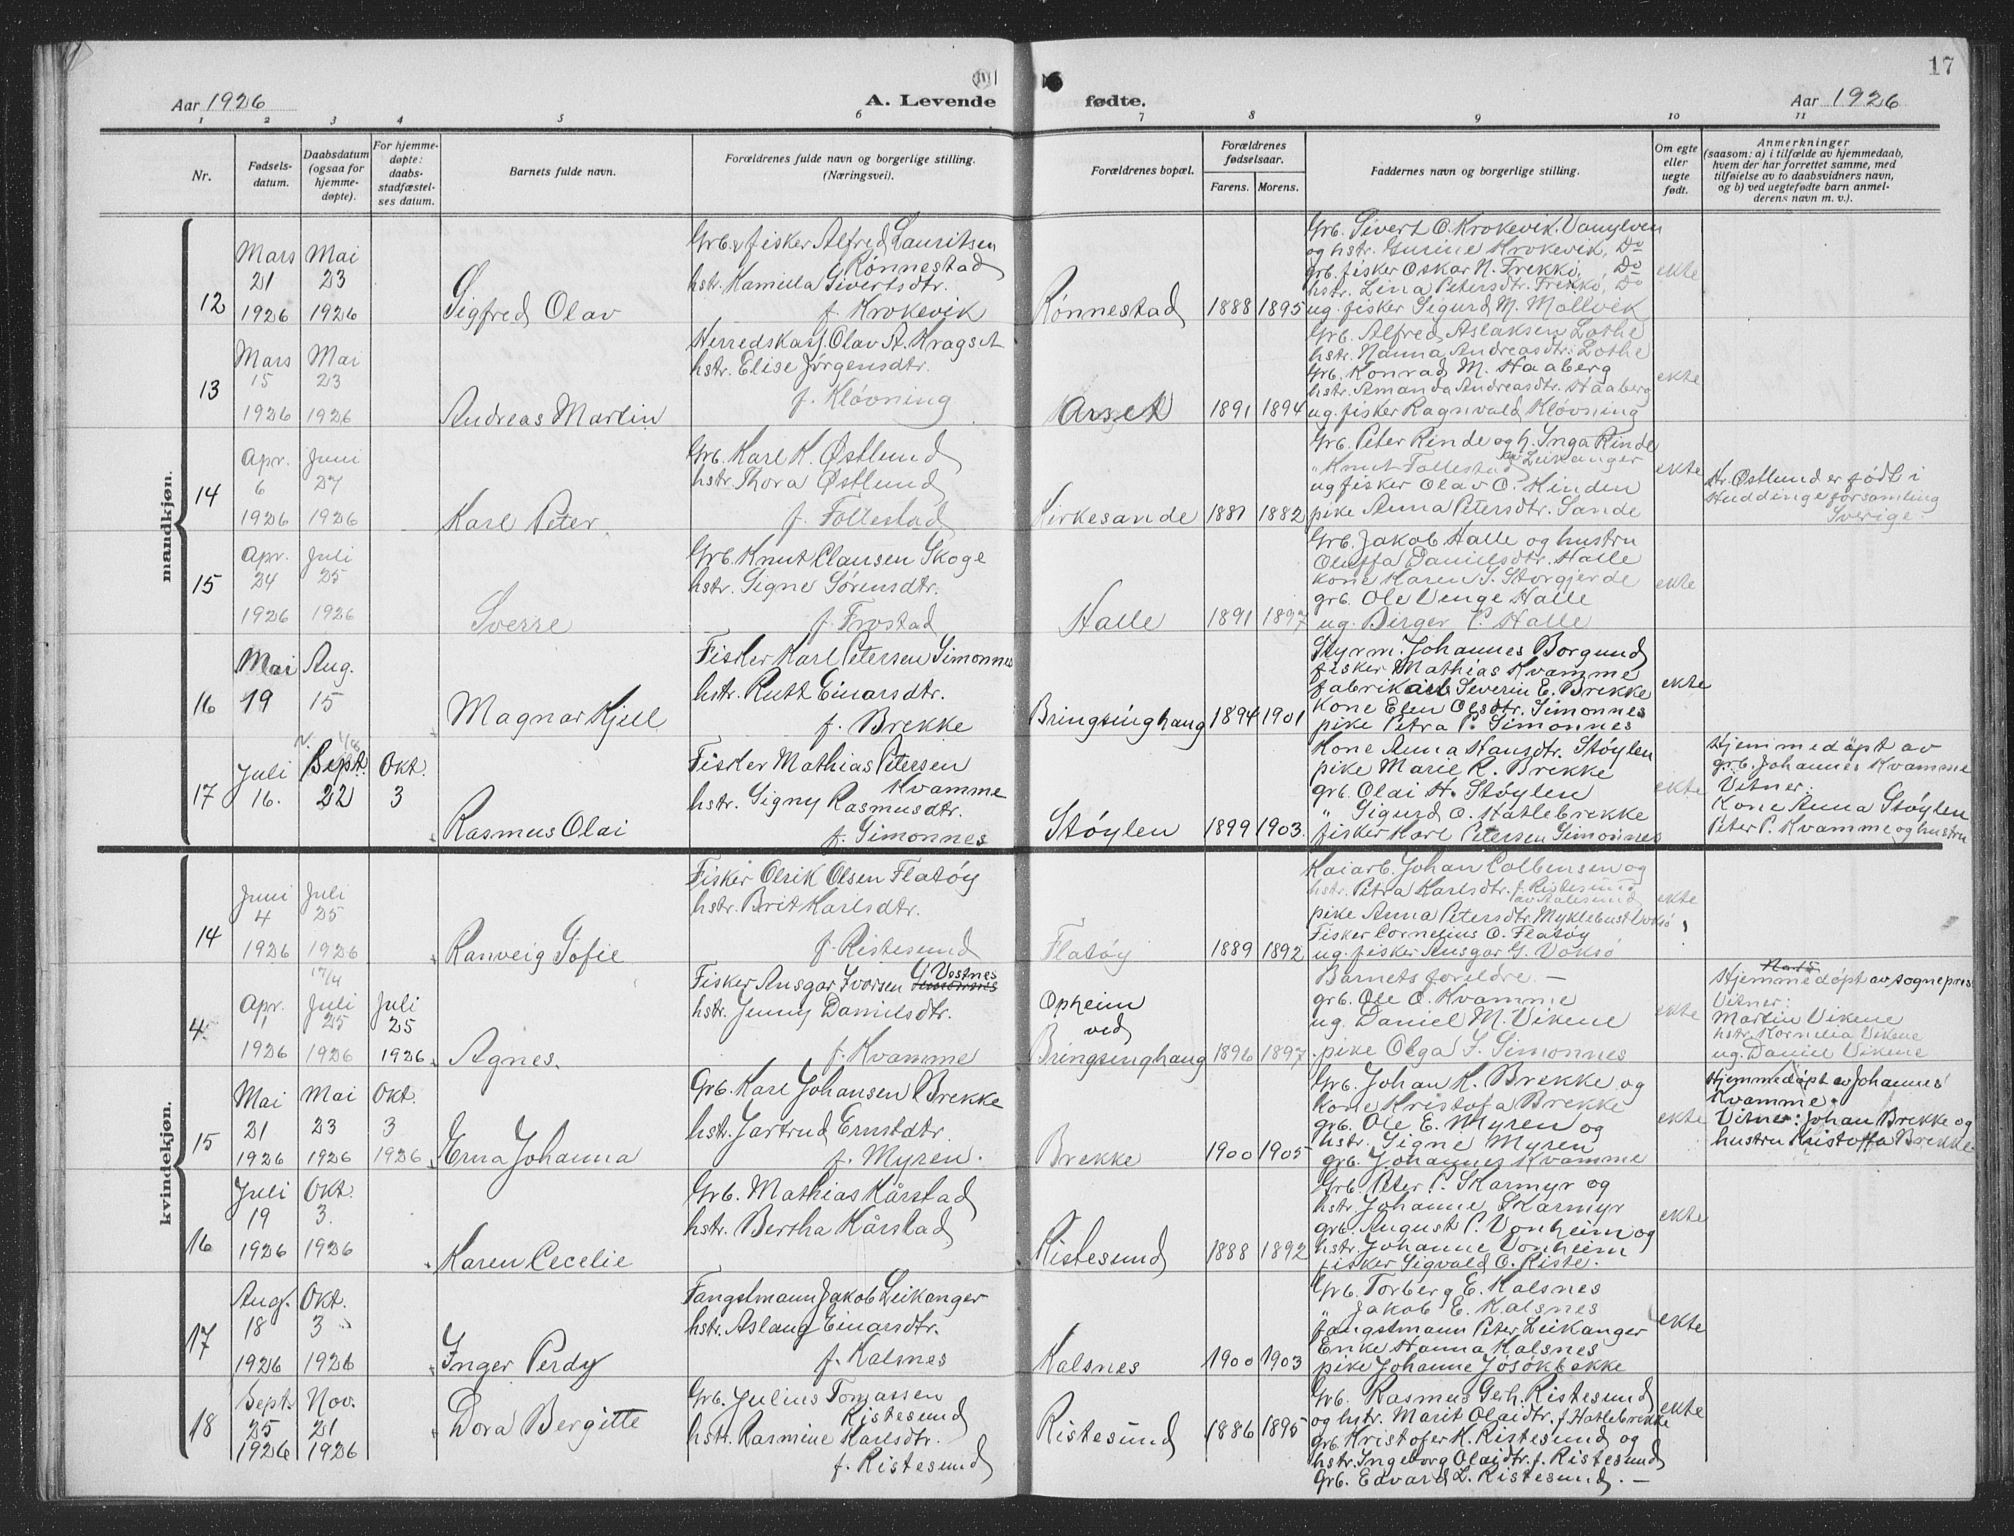 17
Aar 1926
A. Levende fødte.
Aar 1926
1 2 3 4 5 6 7 8 9 10 11
Nr.
Fødsels-
datum.
Daabsdatum
(ogsaa for
hjemme-
døpte).
For hjemme-
døpte:
daabs-
stadfæstel-
ses datum.
Barnets fulde navn.
Forældrenes fulde navn og borgerlige stilling.
(Næringsvei).
Forældrenes bopæl.
Forældrenes
fødselsaar.
Farens. Morens.
Faddernes navn og borgerlige stilling.
Om egte
eller
uegte
født.
Anmerkninger
(saasom: a) i tilfælde av hjemmedaab,
hvem der har forrettet samme, med
tilføielse av to daabsvidners navn,
og b) ved uegtefødte barn anmel-
derens navn m. v.).
mandkjøn.
12
Mars
21
1926
Mai
23
1926
Sigfred Olav
Grb. & fisker Alfred Lauritsen
Rønnestad
hstr. Kamilla Sivertsdtr.
f. Krokevik
Rønnestad
1888 1895
Grb. Sivert O. Krokevik. Vanylven
og hstr. Gurine Krokevik, Do
grb. fisker Oskar N. Frekkø, Do
hstr. Lina Petersdtr. Frekkø, Do
ug. fisker Sigurd M. Mollvik
ekte
13
Mars
15
1926
Mai
23
1926
Andreas Martin
Herredskass. Olav A. Kragset
hstr. Elise Jørgensdtr.
f. Kløvning
Arset
1891 1894
Grb. Alfred Aslaksen Lothe
hstr. Nanna Andreasdtr. Lothe
Grb. Konrad M. Haaberg
hstr. Amanda Andreasdtr. Haaberg
ug. fisker Ragnvald Kløvning
ekte
14
Apr.
6
1926
Juni
27
1926
Karl Peter
Grb. Karl K. Østlund
hstr. Thora Østlund
f. Follestad
Kirkesande
1881 1882
Grb. Peter Rinde og h. Inga Rinde
" Knut Follestad Leikanger
ug fisker Olav O. Hinden
pike Anna Petersdtr. Sande
ekte
Hr. Østlund er født i
Huddinge forsamling
Sverige
15
Apr.
24
1926
Juli
25
1926
Sverre
Grb. Knut Clausen Skoge
hstr. Signe Sørensdtr.
f. Frostad
Halle
1891 1897
Grb. Jakob Halle og hustru
Oluffa Danielsdtr. Halle
kone Karen S. Storgjerde
grb. Ole Venge Halle
ug. Birger P. Halle
ekte
16
Mai
19
Aug.
15
Magnar Kjell
Fisker Karl Petersen Simonnes
hstr. Rutt Einarsdtr.
f. Brekke
Bringsinghaug
1894 1901
Styrm. Johannes Borgund
fisker Mathias Kvamme
fabrikarb. Severin E. Brekke
Kone Elen Olsdtr. Simonnes
pike Petra P. Simonnes
ekte
17
Juli
16.
Sept.
22
Okt.
3
Rasmus Olai
Fisker Mathias Petersen
Kvamme
hstr. Signy Rasmusdtr.
f. Simonnes
Støylen
1899 1903.
Kone Anna Hansdtr. Støylen
pike Marie R. Brekke
grb. Olai H. Støylen
" Sigurd O. Hatlebrekke
fisker Karl Petersen Simonnes
ekte
Hjemmedøpt av
grb. Johannes Kvamme
Vitner:
Kone Anna Støylen
Peter P. Kvamme og hustru
kvindekjøn.
14
Juni
4
1926
Juli
25
1926
Ranveig Sofie
Fisker Olrik Olsen Flatøy
hstr. Brit Karlsdtr.
f. Ristesund
Flatøy
1889 1892
Kaiarb. Johan Colbensen og
hstr. Petra Karlsdtr. f. Ristesund
av Aalesund
pike Anna Petersdtr. Myklebust Voksø
Fisker Cornelius O. Flatøy
ug. fisker Ansgar G. Voksø
ekte
4
Apr.
1
1926
17/4
Juli
25
1926
Juli
25
1926
Agnes.
Fisker Ansgar Ivarsen Vestnes
hstr. Jenny Danielsdtr.
f. Kvamme
Opheim
ved
Bringsinghaug
1896 1897
Barnets foreldre. —
grb. Ole O. Kvamme
ug. Daniel M. Vikene
pike Olga S. Simonnes
ekte
Hjemmedøpt av sogneprest
Vitner:
Martin Vikene
hstr. Kornelia Vikene
ug. Daniel Vikene
15
Mai
21
1926
Mai
23
1926
Okt.
3
1926
Erna Johanna
Grb. Karl Johansen Brekke
hstr. Jartrud Ernstdtr.
f. Myren.
Brekke
1900 1905
Grb. Johan K. Brekke og
Kone Kristofa Brekke
grb. Ole E. Myren og
hstr. Signe Myren
grb. Johannes Kvamme
ekte
Hjemmedøpt av Johannes
Kvamme.
Vitner: Johan Brekke og
hustru Kristoffa Brekke
16
Juli
19
1926
Okt.
3.
1926
Karen Cecelie
Grb. Mathias Kårstad
hstr. Bertha Kårstad
Ristesund
1888 1892
Grb. Peter P. Skarmyr og
hstr. Johanne Skarmyr
grb. August P. Vonheim og
hstr. Johanne Vonheim
fisker Sigvald O. Riste.
ekte
17
Aug.
18
1926
Okt.
3
1926
Inger Perdy
Fangstmann Jakob Leikanger
hstr. Aslaug Einarsdtr.
f. Kalsnes
Kalsnes
1900 1903
Grb. Torberg E. Kalsnes
" Jakob E. Kalsnes
fangstmann Peter Leikanger
Enke Hanna Kalsnes
pike Johanne Jøsøkbakke
ekte
18
Sept.
25
1926
Nov.
21
1926
Dora Bergitte
Grb. Julius Tomassen
Ristesund
hstr. Rasmine Karlsdtr.
f. Ristesund
Ristesund
1886 1895
Grb. Rasmus Gerh. Ristesund
og hstr. Marit Olaidtr. f. Hatlebrekke
grb. Kristofer K. Ristesund og
hstr. Ingeborg Olaidtr. f. Ristesund
Grb. Edvard L. Ristesund. —
ekte